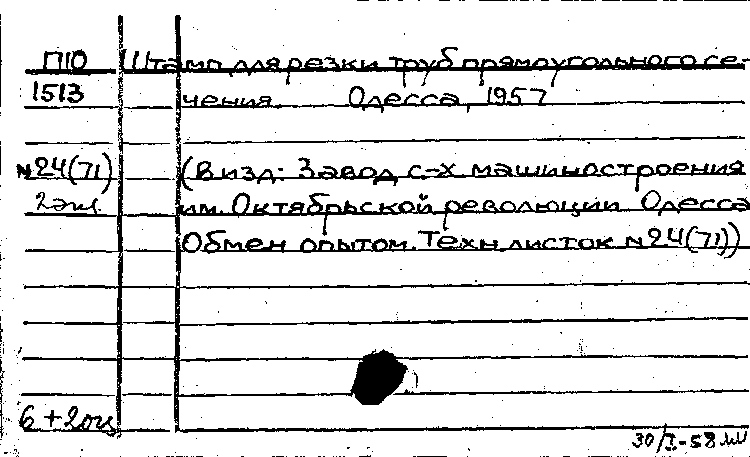 П10 Штамп для резки труб прямоугольного се-
1513 чения. Одесса, 1957
№24(71) (В изд: Завод с-х машиностроения
2 экз. им. Октябрьской революции Одесса
Обмен опытом. Техн. листок №24(71))
6+20
30/I-58